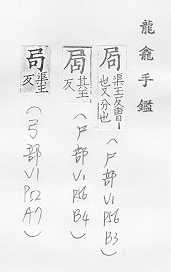 龍龕手鑑
局 渠玉反曹也又分也
(尸部V1 P56 B3)
局 其玉反
(尸部V1 P56 B4)
局 渠玉反
(弓部V1 P52 A7)